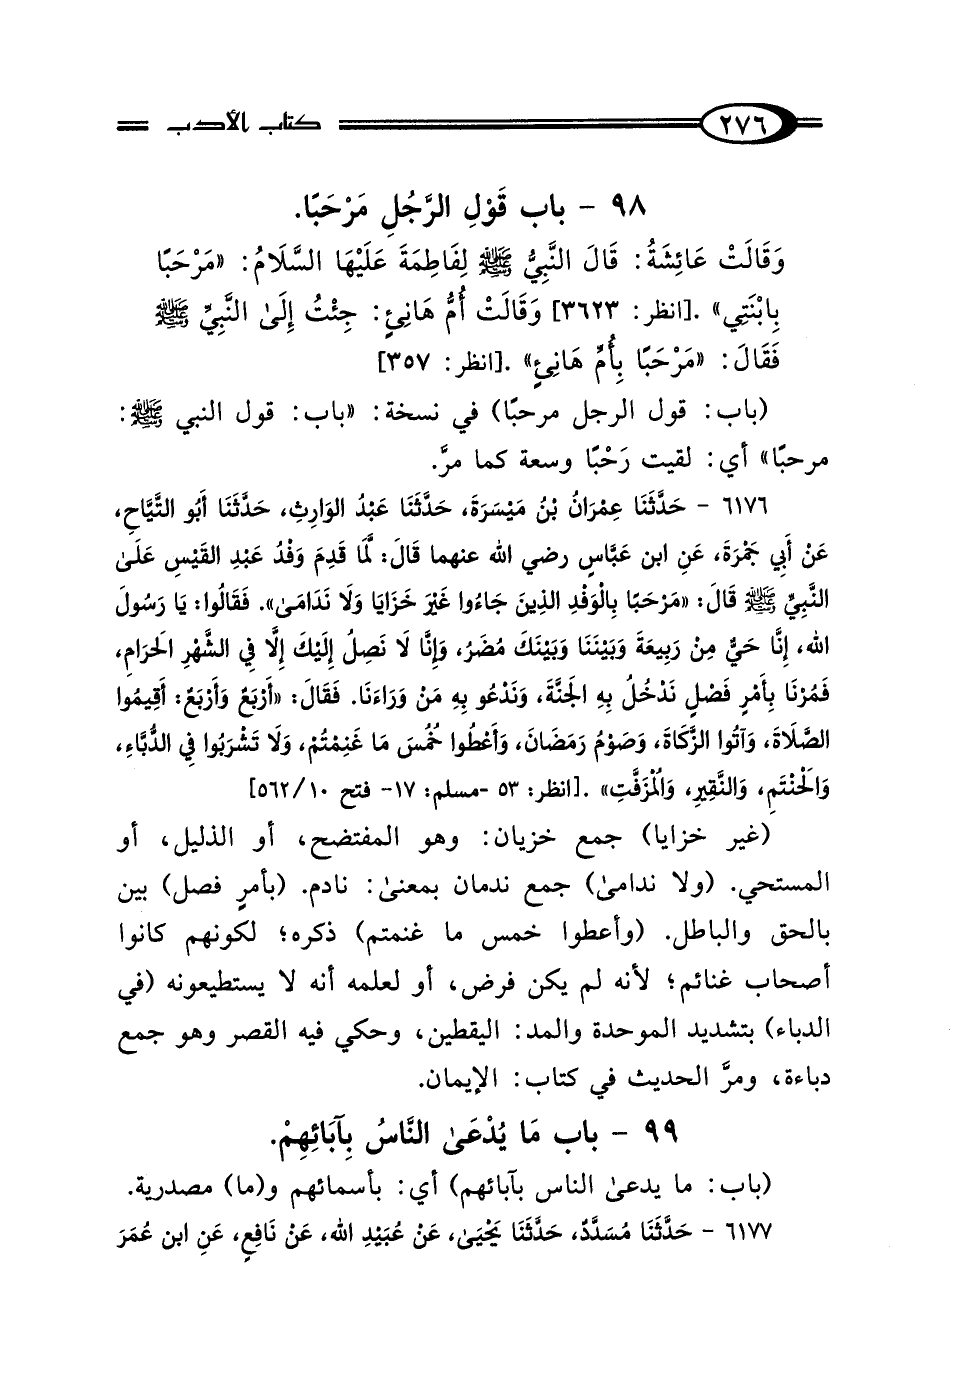 ٢٧٦ كتاب الأدب
٩٨ - باب قَوْلِ الرَّجُلِ مَرْحَبًا.
وَقَالَتْ عَائِشَةُ: قَالَ النَّبِيُّ ﷺ لِفَاطِمَةَ عَلَيْهَا السَّلَامُ: «مَرْحَبًا
بِابْنَتِي» .[انظر: ٣٦٢٣] وَقَالَتْ أُمُّ هَانِئٍ: جِئْتُ إِلَىٰ النَّبِيِّ ﷺ
فَقَالَ: «مَرْحَبًا بِأُمِّ هَانِئٍ» .[انظر: ٣٥٧]
(باب: قول الرجل مرحبًا) في نسخة: «باب: قول النبي ﷺ:
مرحبًا» أي: لقيت رَحْبًا وسعة كما مرَّ.
٦١٧٦ - حَدَّثَنَا عِمْرَانُ بْنُ مَيْسَرَةَ، حَدَّثَنَا عَبْدُ الوَارِثِ، حَدَّثَنَا أَبُو التَّيَّاحِ،
عَنْ أَبِي جَمْرَةَ، عَنِ ابن عَبَّاسٍ رضي الله عنهما قَالَ: لَمَّا قَدِمَ وَفْدُ عَبْدِ القَيْسِ عَلَىٰ
النَّبِيِّ ﷺ قَالَ: «مَرْحَبًا بِالْوَفْدِ الذِينَ جَاءُوا غَيْرَ خَزَايَا وَلَا نَدَامَىٰ». فَقَالُوا: يَا رَسُولَ
الله، إِنَّا حَيٌّ مِنْ رَبِيعَةَ وَبَيْنَنَا وَبَيْنَكَ مُضَرُ، وَإِنَّا لَا نَصِلُ إِلَيْكَ إِلَّا فِي الشَّهْرِ الحَرَامِ،
فَمُرْنَا بِأَمْرٍ فَصْلٍ نَدْخُلُ بِهِ الجَنَّةَ، وَنَدْعُو بِهِ مَنْ وَرَاءَنَا. فَقَالَ: «أَرْبَعٌ وَأَرْبَعٌ: أَقِيمُوا
الصَّلَاةَ، وَآتُوا الزَّكَاةَ، وَصَوْمُ رَمَضَانَ، وَأَعْطُوا خُمُسَ مَا غَنِمْتُمْ، وَلَا تَشْرَبُوا فِي الدُّبَّاءِ،
وَالْحَنْتَمِ، وَالنَّقِيرِ، وَالْمُزَفَّتِ» .[انظر: ٥٣ -مسلم: ١٧- فتح ١٠/ ٥٦٢]
(غير خزايا) جمع خزيان: وهو المفتضح، أو الذليل، أو
المستحي. (ولا ندامىٰ) جمع ندمان بمعنىٰ: نادم. (بأمرٍ فصل) بين
بالحق والباطل. (وأعطوا خمس ما غنمتم) ذكره؛ لكونهم كانوا
أصحاب غنائم؛ لأنه لم يكن فرض، أو لعلمه أنه لا يستطيعونه (في
الدباء) بتشديد الموحدة والمد: اليقطين، وحكي فيه القصر وهو جمع
دباءة، ومرَّ الحديث في كتاب: الإيمان.
٩٩ - باب مَا يُدْعَىٰ النَّاسُ بِآبَائِهِمْ.
(باب: ما يدعىٰ الناس بآبائهم) أي: بأسمائهم و(ما) مصدرية.
٦١٧٧ - حَدَّثَنَا مُسَدَّدٌ، حَدَّثَنَا يَحْيَىٰ، عَنْ عُبَيْدِ الله، عَنْ نَافِعٍ، عَنِ ابن عُمَرَ